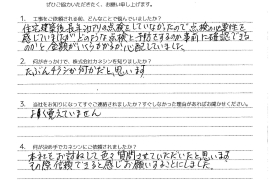 ぜひご協力いただきたく、お願い申し上げます。
1. 工事をご依頼される前、どんなことで悩んでいましたか？
住宅建築後長年初めての点検をしていなかったので点検の必要性を
感じていましたがどのような点検と予防をするのか事前に確認できる
のかと金額がいくらかかるか心配していました
2. 何がきっかけで、株式会社カネシンを知りましたか？
たぶんチラシか何かだと思います
3. 当社をお知りになってすぐご連絡されましたか？すぐしなかった理由があればお聞かせください。
よく覚えていません
4. 何が決め手でカネシンにご依頼されましたか？
本社をお訪ねして色々質問させていただいたと思います
その際信頼できると感じお願いすることにしました